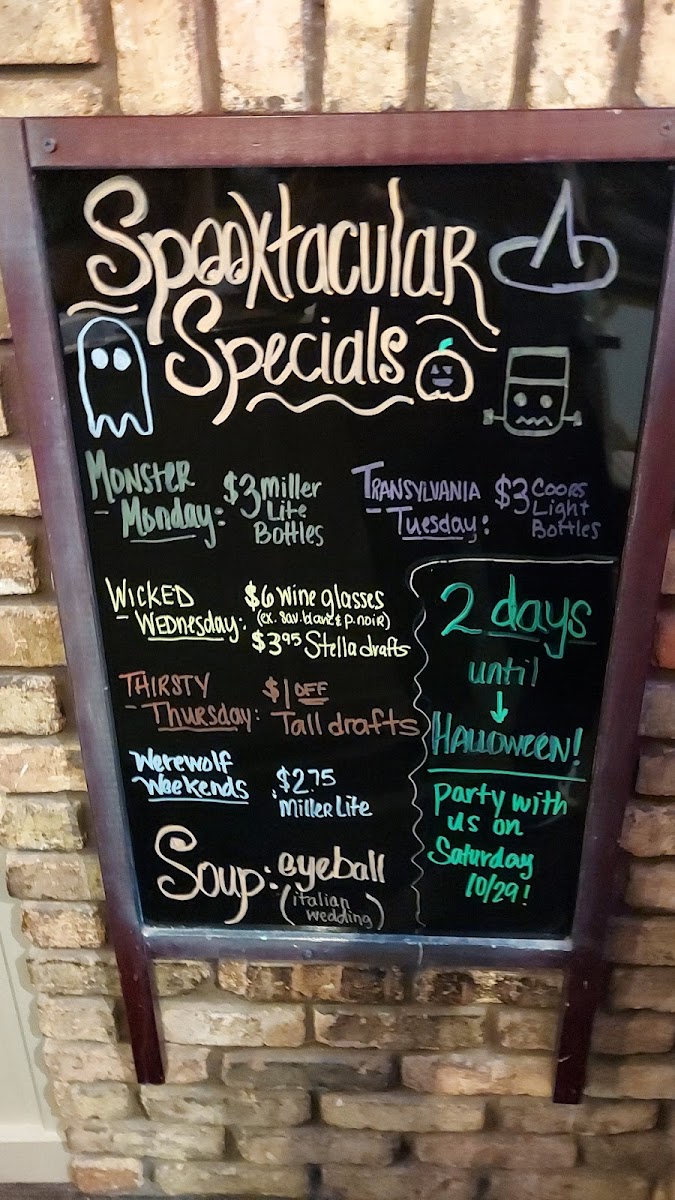 Spooktacular
Specials
Monster
- Monday: $3 Miller
Lite
Bottles
Transylvania
- Tuesday: $3 Coors
Light
Bottles
Wicked
- Wednesday: $6 wine glasses
(ex. sav. blanc & p. noir)
$3.95 Stella drafts
Thirsty
- Thursday: $1 OFF
Tall drafts
Werewolf
Weekends $2.75
Miller Lite
Soup: eyeball
(italian
wedding)
2 days
until
↓
Halloween!
party with
us on
Saturday
10/29!